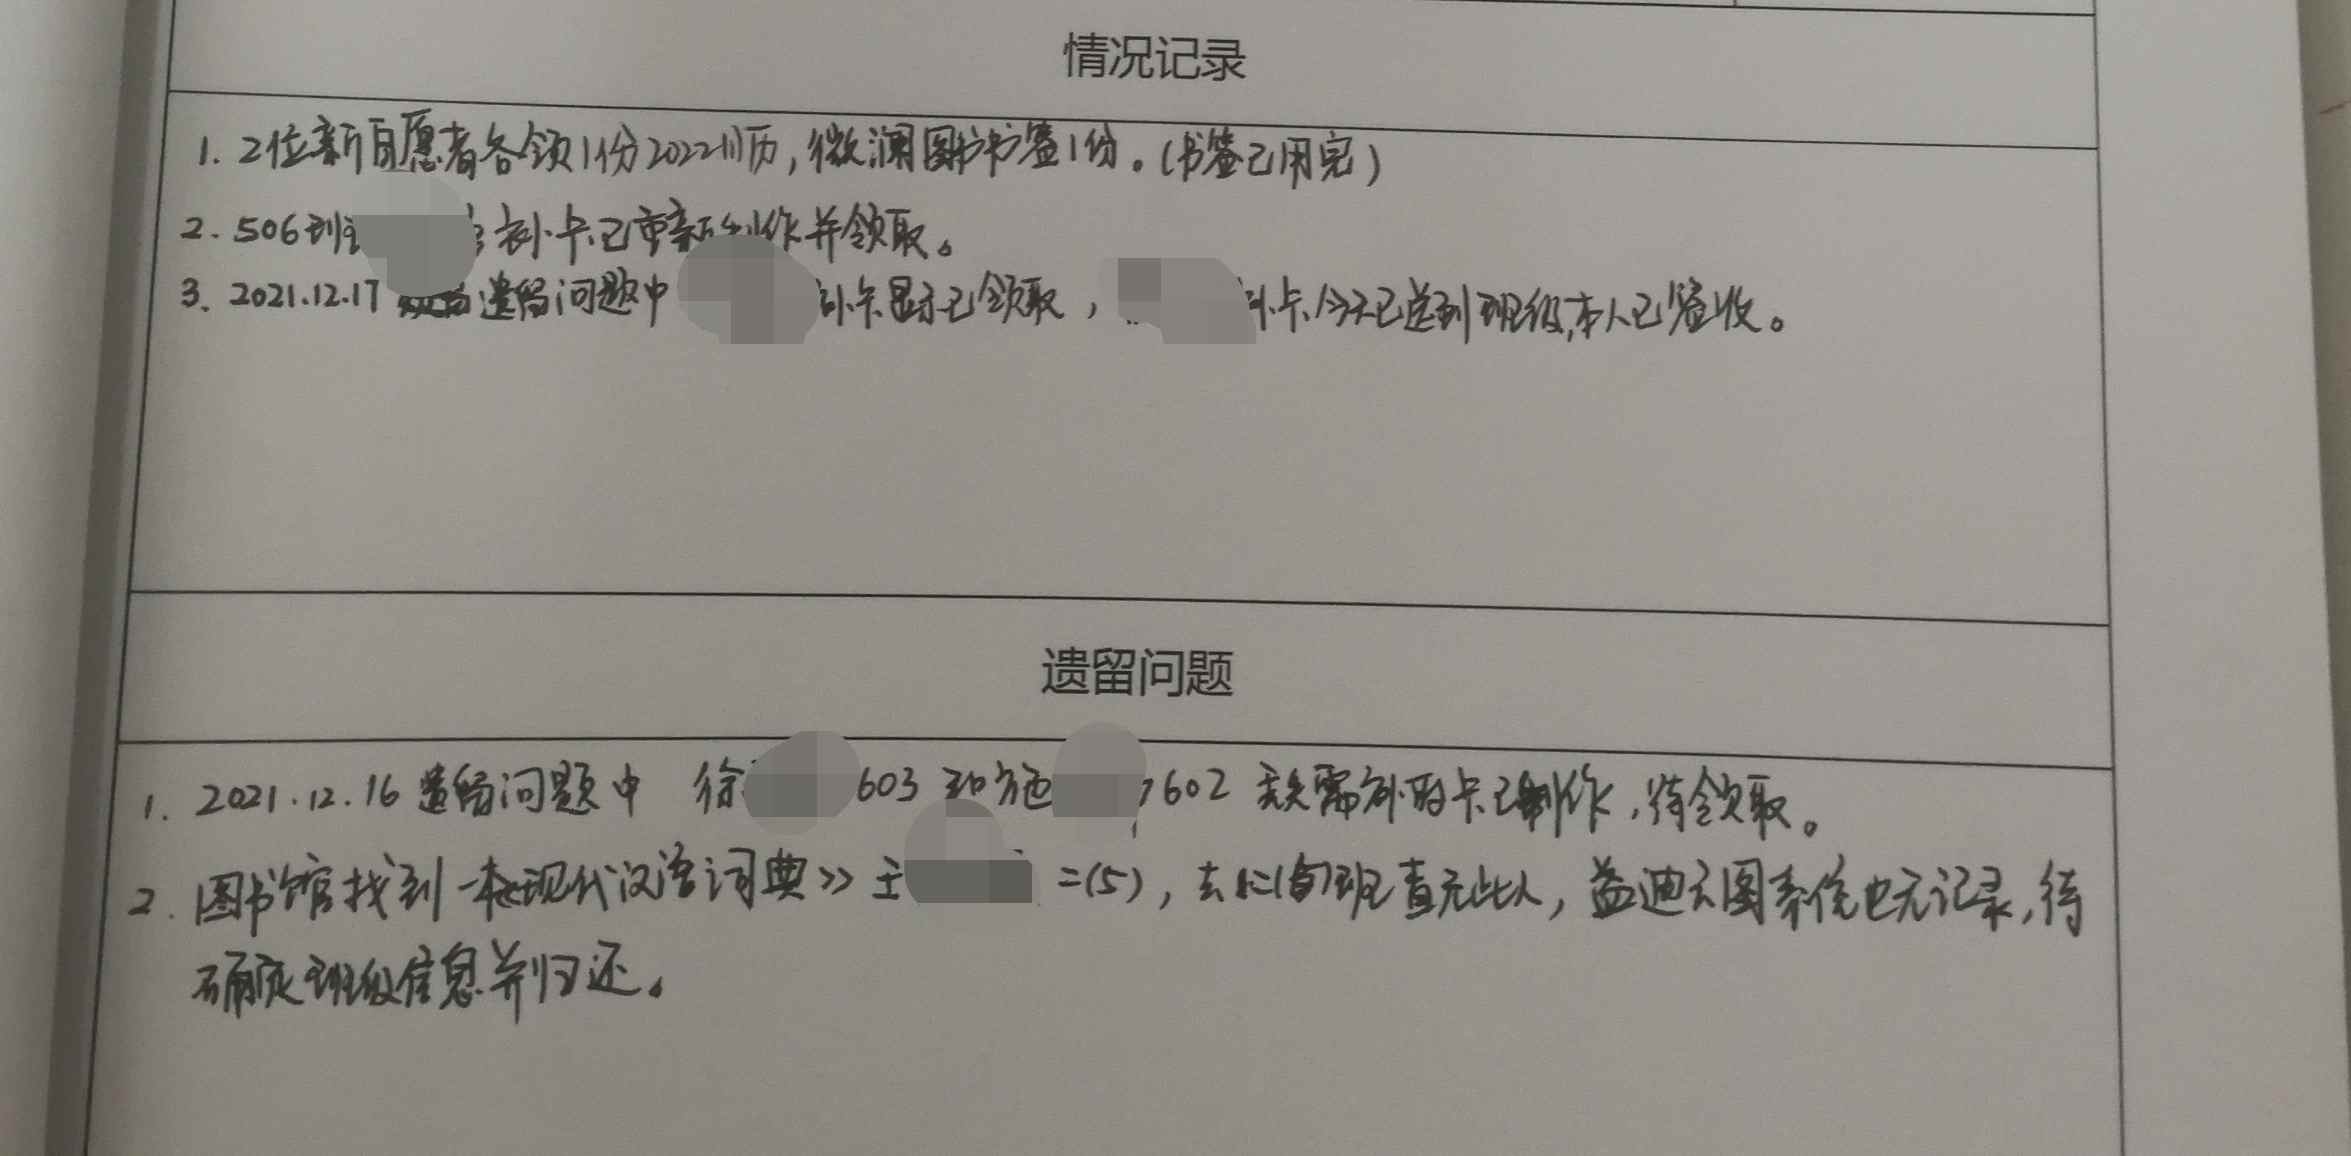 情况记录
1. 2位新自愿者各领1份2022川历,微澜图书书签1份。(书签已用完)
2. 506班 补卡已重新制作并领取。
3. 2021.12.17 遗留问题中 补卡显示已领取, 补卡今天已送到班级,本人已签收。
遗留问题
1. 2021.12.16 遗留问题中 徐 603 和施 602 丢失需补的卡已制作,待领取。
2. 图书馆找到一本《现代汉语词典》 王 二(5), 去 班查无此人, 益迪云图系统也无记录,待
确定班级信息并归还。